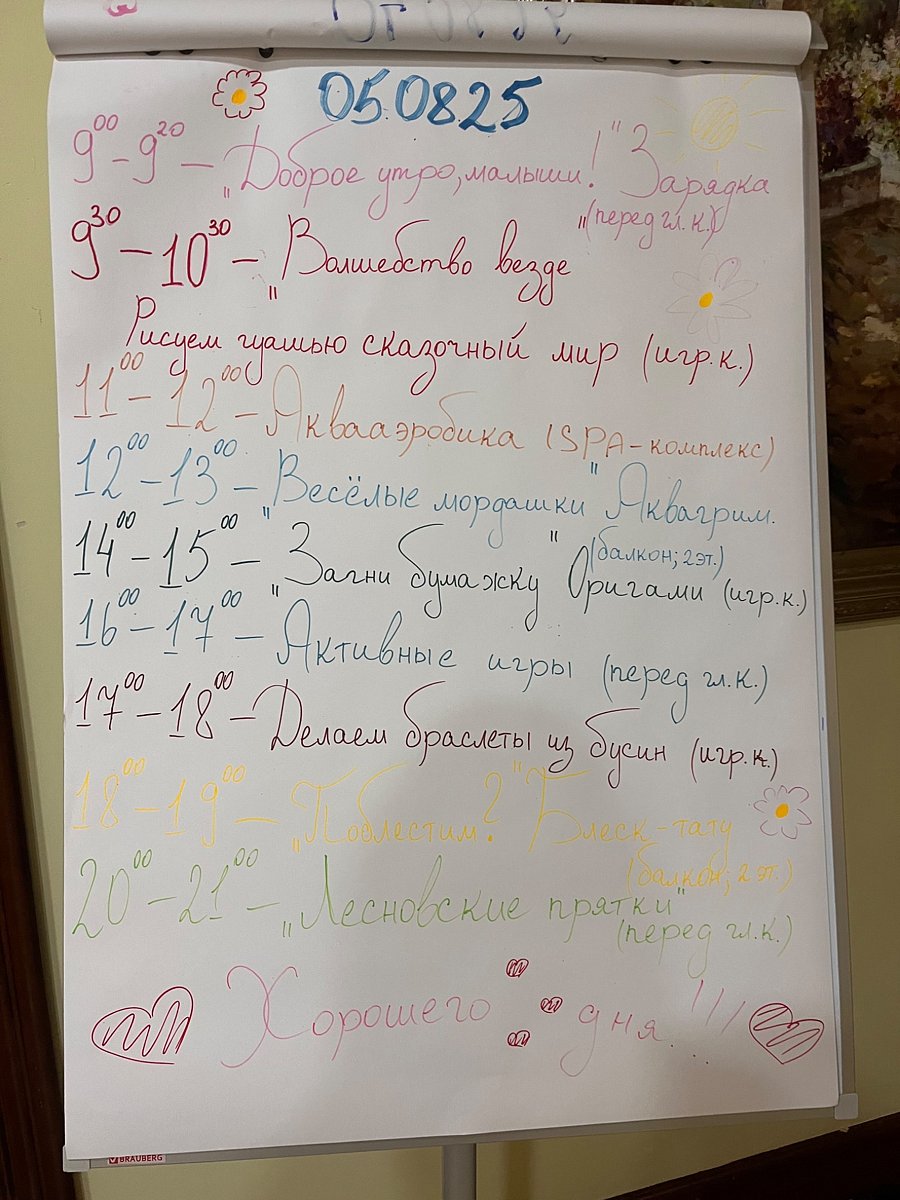 05.08.25
9⁰⁰ - 9²⁰ — „Доброе утро, малыши!" Зарядка
(перед гл.к.)
9³⁰ - 10³⁰ - „Волшебство везде"
Рисуем гуашью сказочный мир (игр.к.)
11⁰⁰ - 12⁰⁰ - Аквааэробика (SPA-комплекс)
12⁰⁰ - 13⁰⁰ - „Весёлые мордашки" Аквагрим.
(балкон; 2 эт.)
14⁰⁰ - 15⁰⁰ - „Загни бумажку" Оригами (игр.к.)
16⁰⁰ - 17⁰⁰ - Активные игры (перед гл.к.)
17⁰⁰ - 18⁰⁰ - Делаем браслеты из бусин (игр.к.)
18⁰⁰ - 19⁰⁰ - „Поблестим?" Блеск-тату
(балкон; 2 эт.)
20⁰⁰ - 21⁰⁰ - „Лесновские прятки"
(перед гл.к.)
Хорошего дня!!!...
BRAUBERG